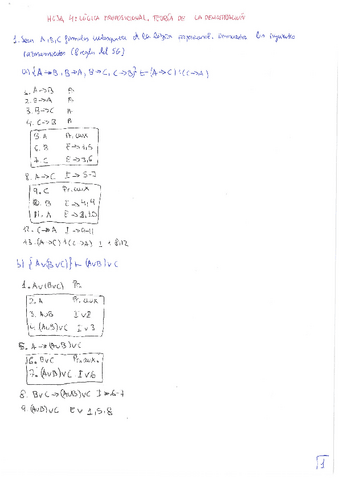 HOJA 4: LÓGICA PROPOSICIONAL. TEORÍA DE LA DEMOSTRACIÓN
1. Sean A, B, C fórmulas cualesquiera de la lógica proposicional, los siguientes
(reglas del SG)
a) {A→B, B→A, B→C, C→B} ⊢ (A→C) ∧ (C→A)
1. A→B
2. B→A
3. B→C
4. C→B
5. A Pr. aux
6. B E→ 1,5
7. C E→ 3,6
8. A→C I→ 5-7
9. C Pr. aux
10. B E→ 4,9
11. A E→ 2,10
12. C→A I→ 9-11
13. (A→C) ∧ (C→A) I ∧ 8,12
b) {A∨(B∨C)} ⊢ (A∨B)∨C
1. A∨(B∨C) Pr
2. A Pr. aux
3. A∨B I∨2
4. (A∨B)∨C I∨3
5. A→(A∨B)∨C
6. B∨C Pr. aux.
7. (A∨B)∨C I∨6
8. B∨C→(A∨B)∨C I→ 6-7
9. (A∨B)∨C E∨ 1,5,8
1